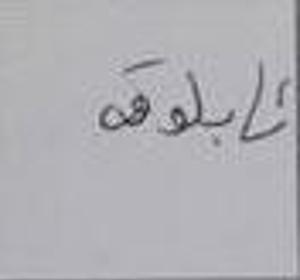 تابلوقه